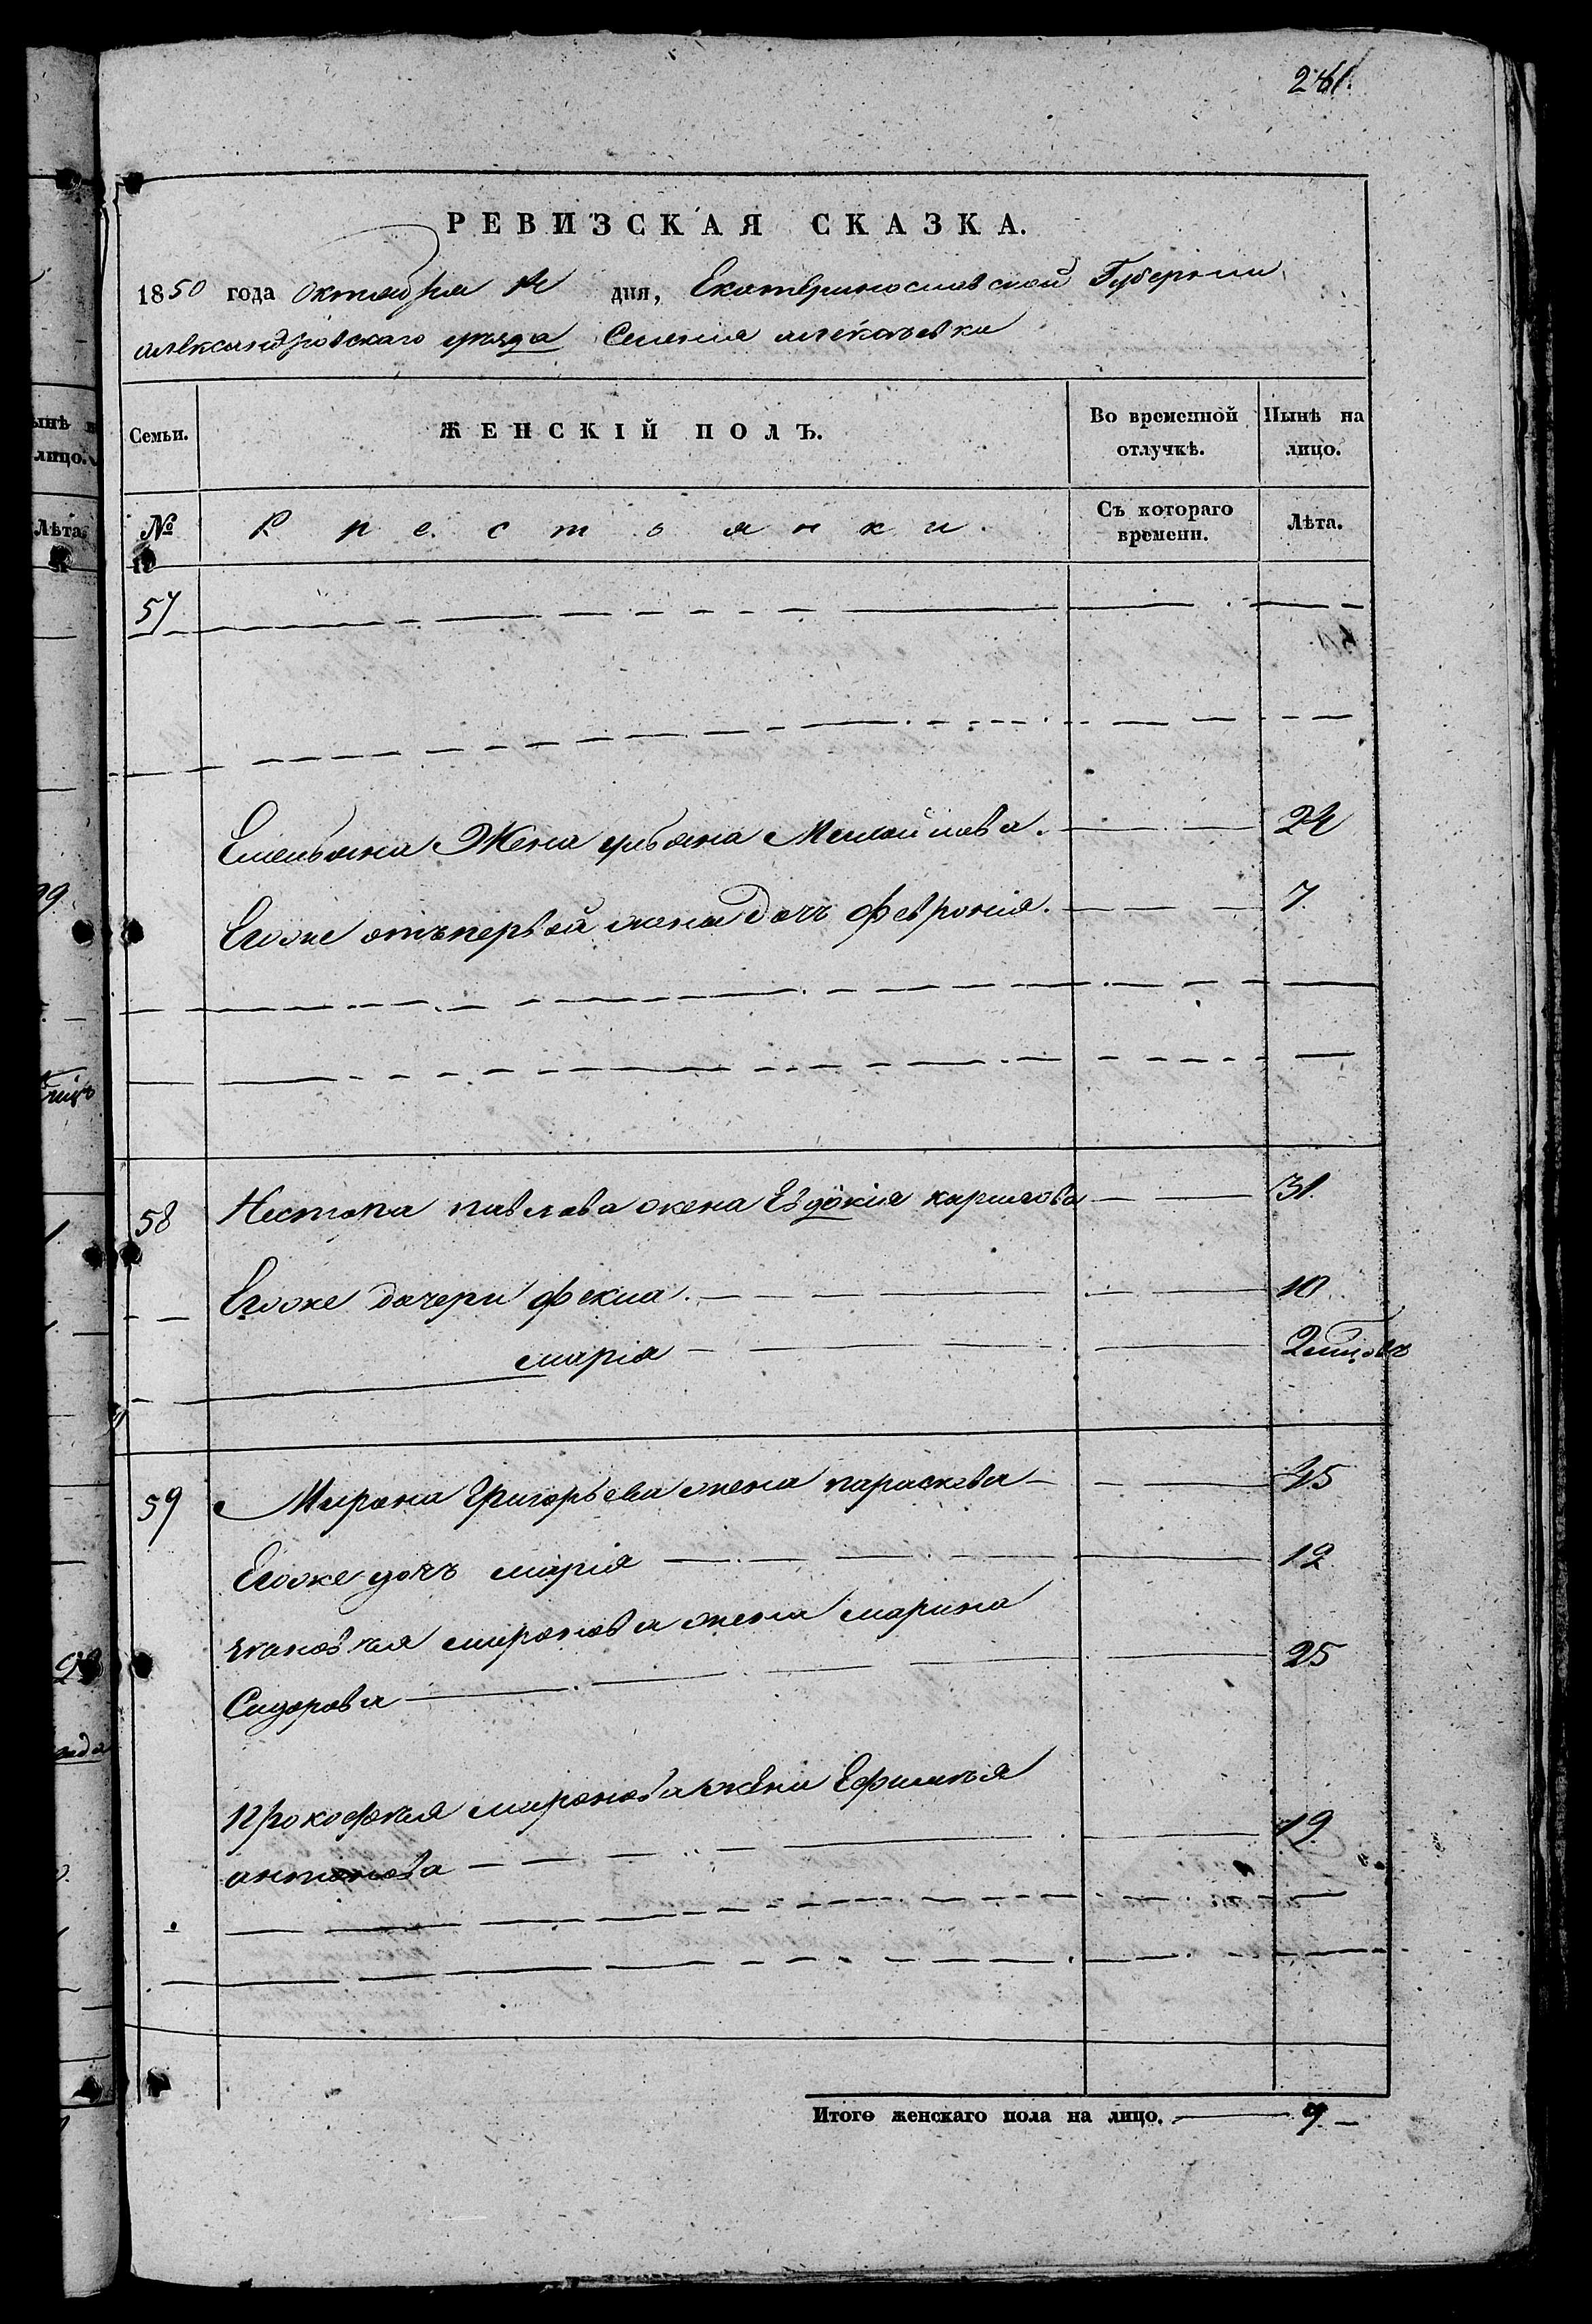 РЕВИЗСКАЯ СКАЗКА.
1850 года октября дня, Екатеринославской Губернии
александровскаго уѣзда Селения алексѣевки
Семьи. ЖЕНСКІЙ ПОЛЪ. Во временной отлучкѣ. Нынѣ на лицо.
№ Крестьянки. Съ котораго времени. Лѣта.
57
Емельяна Жена ульяна 24
Егоже отъпервой жены дочь феврония. 7
58 Нестора павлова жена Евдокия карпова 31.
Егоже дочери фекла. 10
мария 2
59 Мирона Григорьева жена параскева 45
Егоже дочь мария 12
якова миронова жена марина
Сидорова 25
Прокофия миронова жена Ефимия
антонова 19
Итого женскаго пола на лицо.